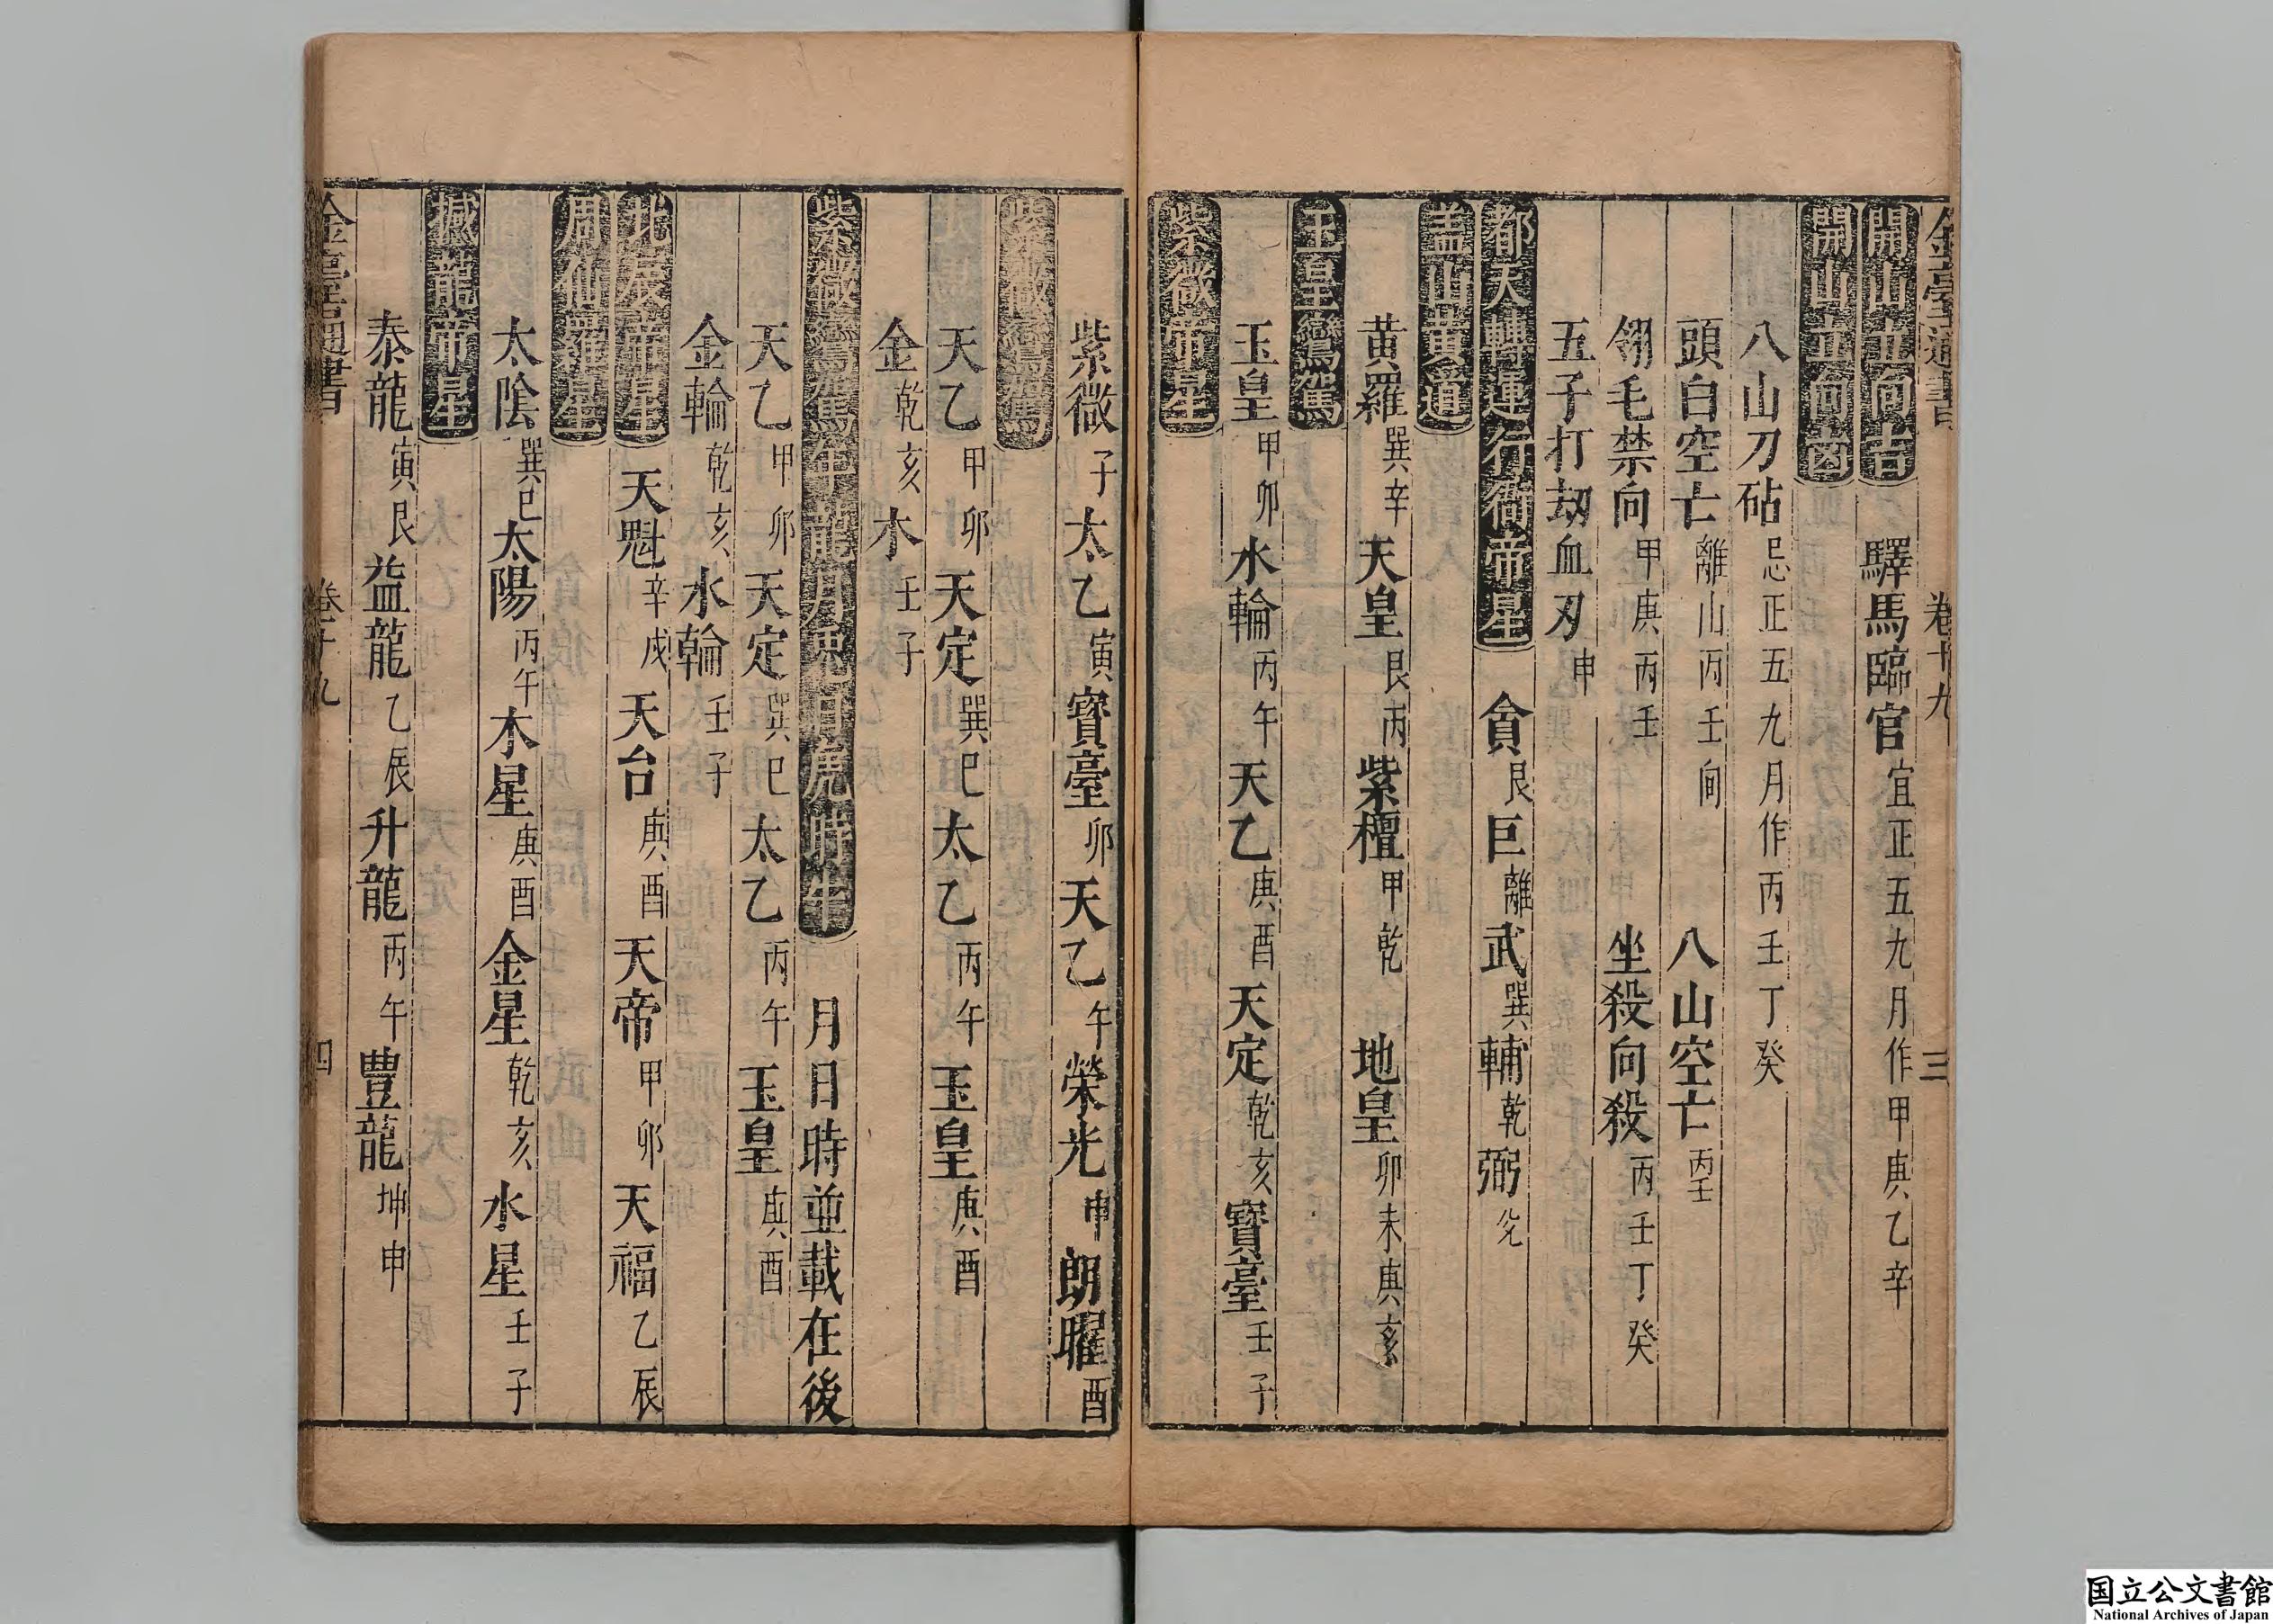 金臺通書 卷十九 三
開山立向吉 驛馬臨官宜正五九月作甲庚乙辛
開山立向凶
八山刀砧忌正五九月作丙壬丁癸
頭白空亡離山丙壬向 八山空亡丙壬
翎毛禁向甲庚丙壬 坐殺向殺丙壬丁癸
五子打刼血刃申
都天轉運行衙帝星 貪艮巨離武巽輔乾弼兊
盖山黄道
黄羅巽辛天皇艮丙紫檀甲乾 地皇卯未庚亥
玉皇鸞駕
玉皇甲卯水輪丙午天乙庚酉天定乾亥寳臺壬子
紫微帝星
紫微子太乙寅寳臺卯天乙午榮光申朗曜酉
紫微鸞駕
天乙甲卯天定巽巳太乙丙午玉皇庚酉
金乾亥水壬子
紫微鸞駕年龍月兎日虎時牛 月日時並載在後
天乙甲卯天定巽巳太乙丙午玉皇庚酉
金輪乾亥水輪壬子
北辰帝星 天魁辛戍天台庚酉天帝甲卯天福乙辰
周仙羅星
太陰巽巳太陽丙午木星庚酉金星乾亥水星壬子
撼龍帝星
泰龍寅艮益龍乙辰升龍丙午豊龍坤申
金臺通書 卷十九 四
国立公文書館
National Archives of Japan